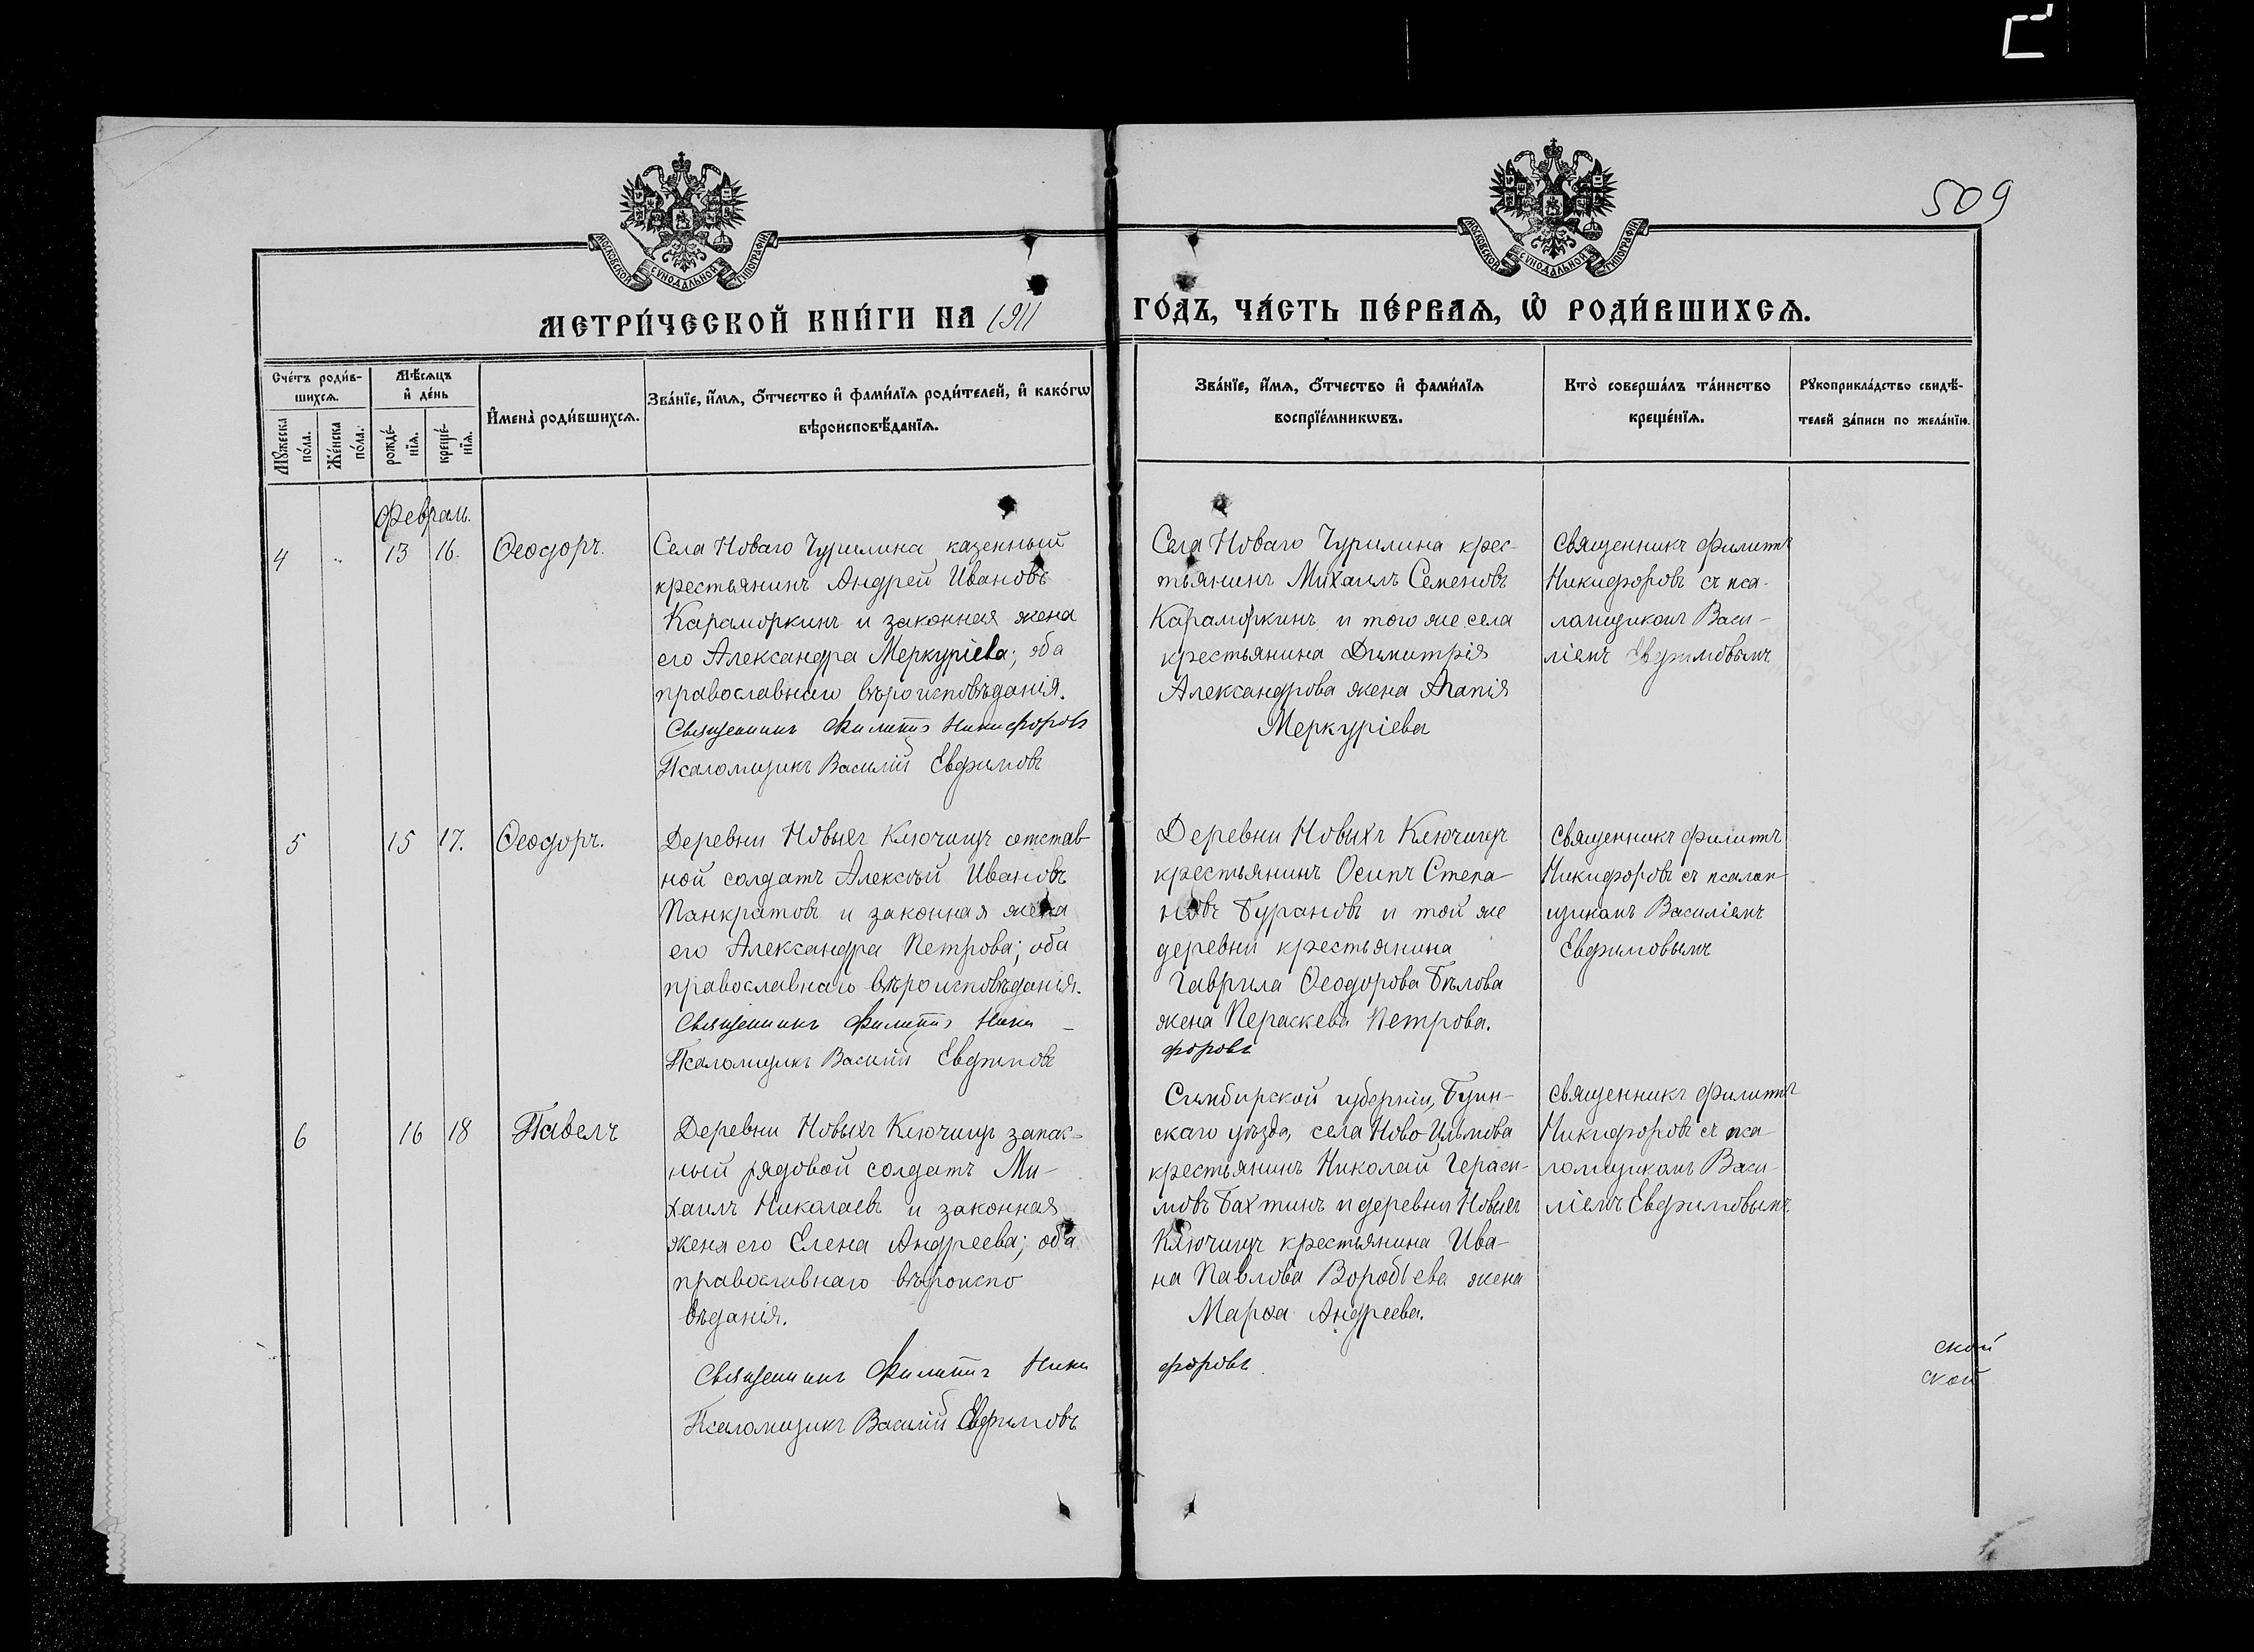 509
МОСКОВСКОЙ СѴНОДАЛЬНОЙ ТИПОГРАФІИ
МОСКОВСКОЙ СѴНОДАЛЬНОЙ ТИПОГРАФІИ
МЕТРИ́ЧЕСКОЙ КНИ́ГИ НА 1911
ГО́ДЪ, ЧА́СТЬ ПЕ́РВАѦ, Ѽ РОДИ́ВШИХСѦ.
Сче́тъ роди́в-
шихсѧ.
Мꙋжеска
по́ла.
Же́нска
по́ла.
Мѣ́сѧцъ
и҆ де́нь
рожде́-
нїѧ.
креще́-
нїѧ.
И҆мена̀ роди́вшихсѧ.
Зва́нїе, и҆́мѧ, ѻ҆́тчество и҆ фами́лїѧ роди́телей, и҆ како́гѡ
вѣроисповѣ́данїѧ.
Зва́нїе, и҆́мѧ, ѻ҆́тчество и҆ фами́лїѧ
воспрїе́мникѡвъ.
Кто̀ соверша́лъ та́инство
креще́нїѧ.
Рꙋкоприкла́дство свидѣ́-
телей за́писи по жела́нїю.
Февраль.
4
"
13
16.
Ѳеодоръ.
Села Новаго Чурилина казенный
крестьянинъ Андрей Ивановъ
Караморкинъ и законная жена
его Александра Меркуріева; оба
православнаго вѣроисповѣданія.
Священникъ Филиппъ Никифоровъ
Псаломщикъ Василій Евфимовъ
Села Новаго Чурилина крес-
тьянинъ Михаилъ Семеновъ
Караморкинъ и того же села
крестьянина Димитрія
Александрова жена Агапія
Меркуріева
Священникъ Филиппъ
Никифоровъ съ пса-
ломщикомъ Васи-
ліемъ Евфимовымъ
5
15
17.
Ѳеодоръ.
Деревни Новыхъ Ключищъ отстав-
ной солдатъ Алексѣй Ивановъ
Панкратовъ и законная жена
его Александра Петрова; оба
православнаго вѣроисповѣданія.
Священникъ Филиппъ Ники-
форовъ
Псаломщикъ Василій Евфимовъ
Деревни Новыхъ Ключищъ
крестьянинъ Осипъ Степа-
новъ Бурановъ и той же
деревни крестьянина
Гаврила Ѳеодорова Бѣлова
жена Пераскева Петрова.
Священникъ Филиппъ
Никифоровъ съ псалом-
щикомъ Василіемъ
Евфимовымъ
6
16
18
Павелъ
Деревни Новыхъ Ключищъ запас-
ный рядовой солдатъ Ми-
хаилъ Николаевъ и законная
жена его Елена Андреева; оба
православнаго вѣроиспо
вѣданія.
Священникъ Филиппъ Ники
форовъ
Псаломщикъ Василій Евфимовъ
Симбирской губерніи, Буин-
скаго уѣзда, села Ново-Ильмова
крестьянинъ Николай Гераси-
мовъ Бахтинъ и деревни Новыхъ
Ключищъ крестьянина Ива-
на Павлова Воробьева жена
Марѳа Андреева.
Священникъ Филиппъ
Никифоровъ съ пса-
ломщикомъ Васи-
ліемъ Евфимовымъ
ской
ской